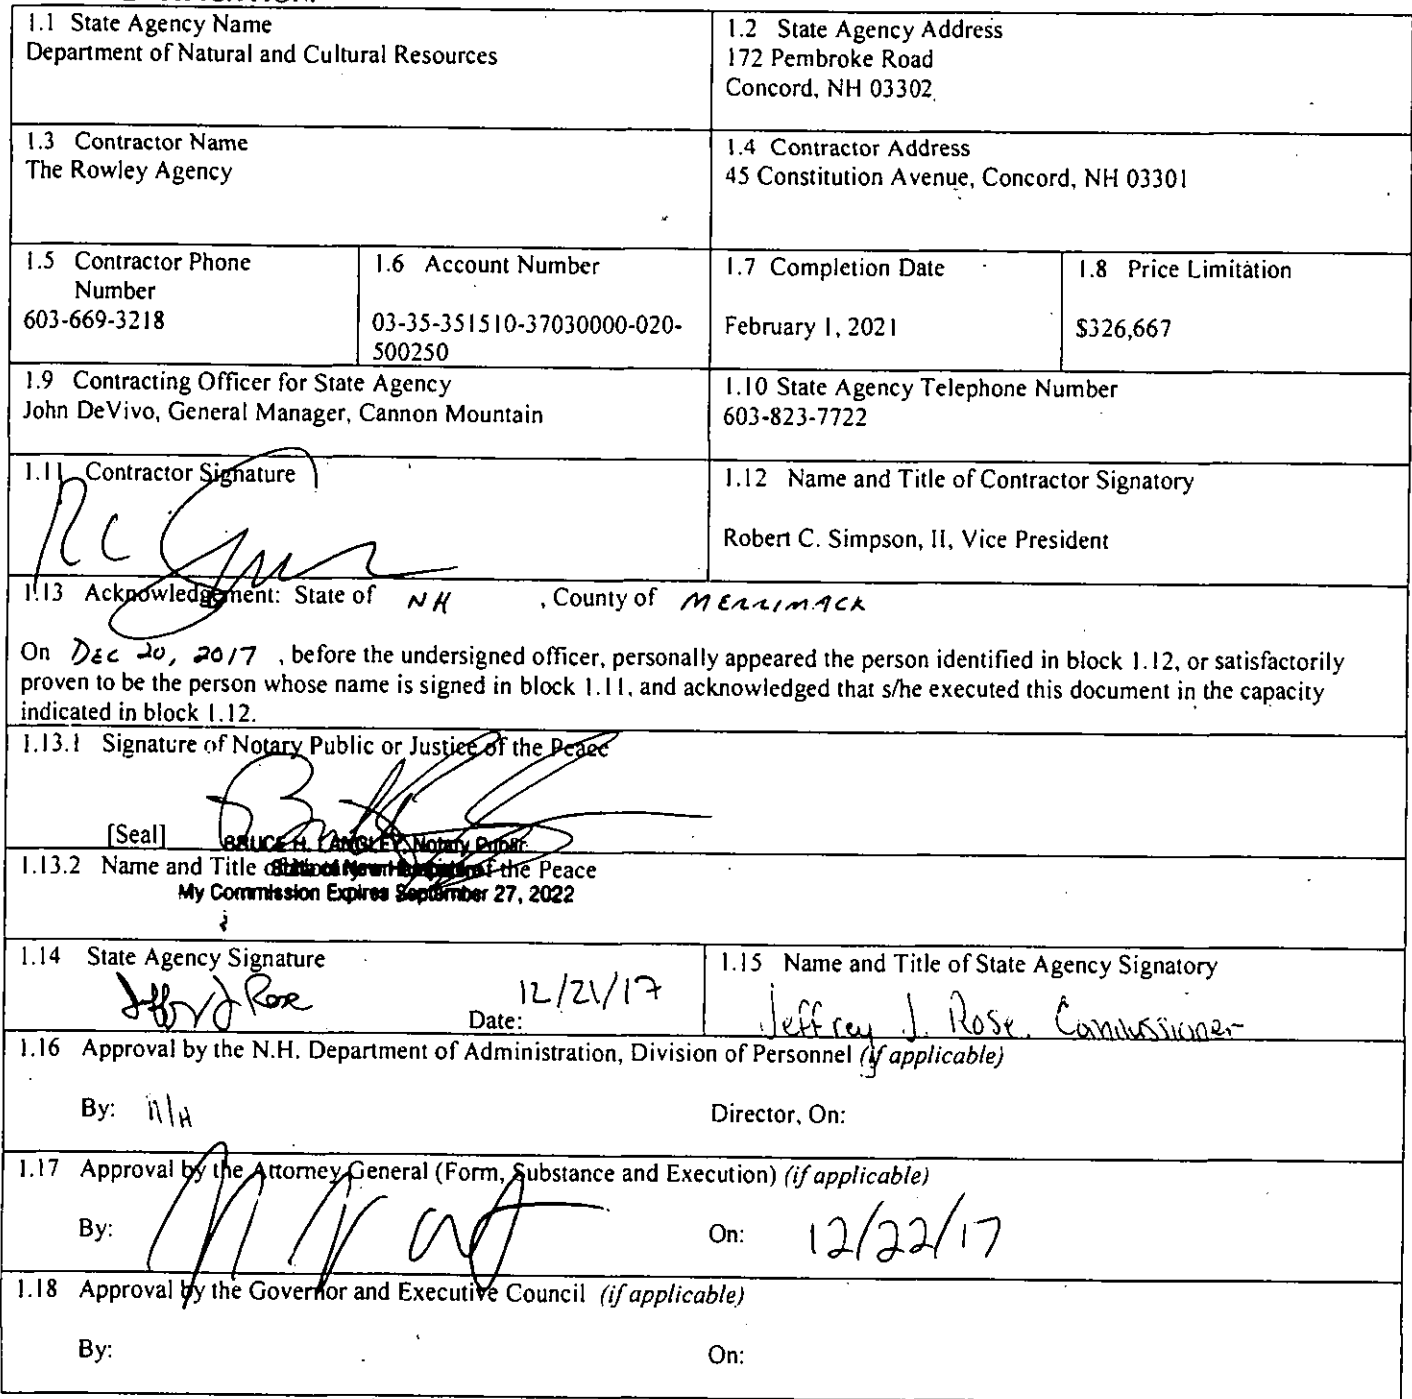 1.1 State Agency Name
Department of Natural and Cultural Resources
1.2 State Agency Address
172 Pembroke Road
Concord, NH 03302
1.3 Contractor Name
The Rowley Agency
1.4 Contractor Address
45 Constitution Avenue, Concord, NH 03301
1.5 Contractor Phone
Number
603-669-3218
1.6 Account Number
03-35-351510-37030000-020-
500250
1.7 Completion Date
February 1, 2021
1.8 Price Limitation
$326,667
1.9 Contracting Officer for State Agency
John DeVivo, General Manager, Cannon Mountain
1.10 State Agency Telephone Number
603-823-7722
1.11 Contractor Signature
1.12 Name and Title of Contractor Signatory
Robert C. Simpson, II, Vice President
1.13 Acknowledgement: State of NH , County of MERRIMACK
On Dec 20, 2017 , before the undersigned officer, personally appeared the person identified in block 1.12, or satisfactorily
proven to be the person whose name is signed in block 1.11, and acknowledged that s/he executed this document in the capacity
indicated in block 1.12.
1.13.1 Signature of Notary Public or Justice of the Peace
[Seal]
BRUCE H. LANGLEY, Notary Public
1.13.2 Name and Title of the Peace
State of New Hampshire
My Commission Expires September 27, 2022
1.14 State Agency Signature
Jeffrey J Rose 12/21/17
Date:
1.15 Name and Title of State Agency Signatory
Jeffrey J. Rose, Commissioner
1.16 Approval by the N.H. Department of Administration, Division of Personnel (if applicable)
By: N/A
Director, On:
1.17 Approval by the Attorney General (Form, Substance and Execution) (if applicable)
By:
On: 12/22/17
1.18 Approval by the Governor and Executive Council (if applicable)
By:
On: